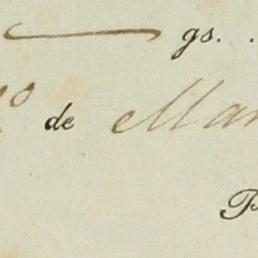 gs. .
o de Mar
P